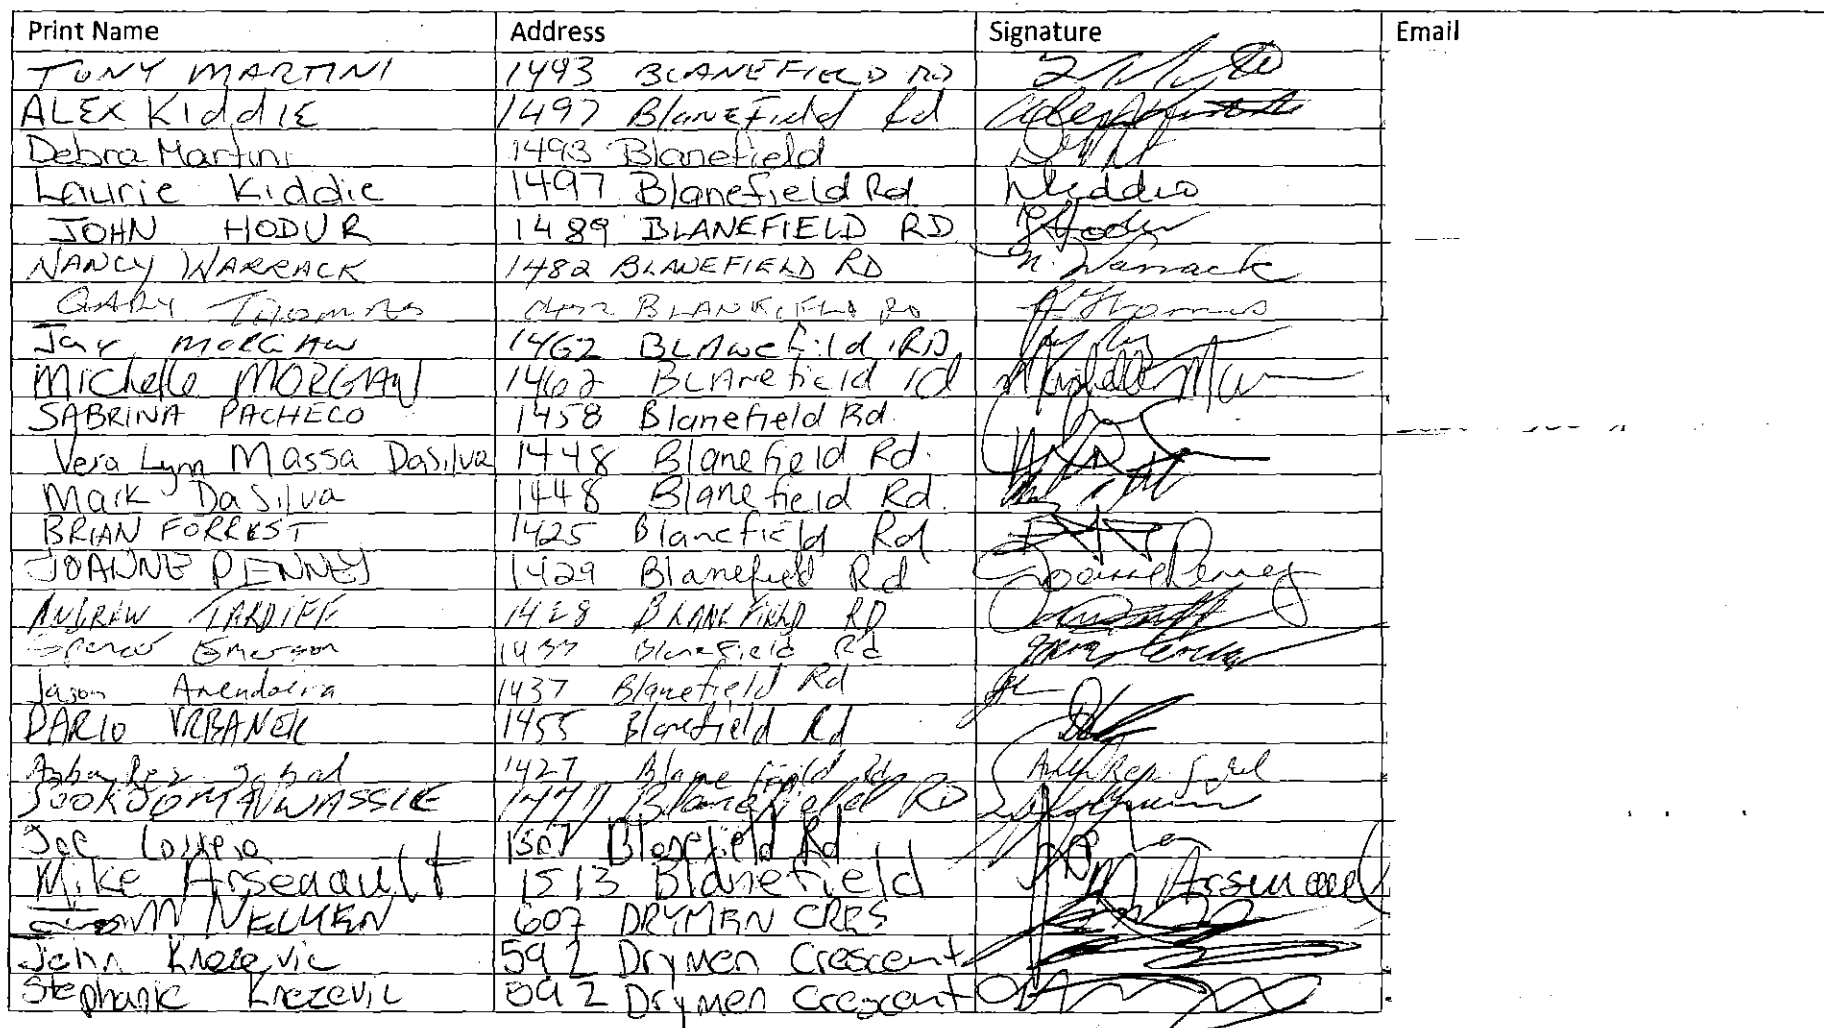 Print Name Address Signature Email
TONY MARTINI 1493 BLANEFIELD RD
ALEX KiddIE 1497 BlanEField Rd
Debra Martini 1493 Blanefield
Laurie Kiddie 1497 Blanefield Rd LKiddie
JOHN HODUR 1489 BLANEFIELD RD JHodur
NANCY WARRACK 1482 BLANEFIELD RD N. Warrack
GARY THOMAS BLANEFIELD RD G Thomas
Jay MORGAN 1462 BLANefield RD
Michelle MORGAN 1462 BLANefield rd
SABRINA PACHECO 1458 Blanefield Rd.
Vera Lynn Massa DaSilva 1448 Blanefield Rd.
Mark DaSilva 1448 Blanefield Rd.
BRIAN FORREST 1425 Blanefield Rd
JOANNE PENNEY 1429 Blanefield Rd Joanne Penney
ANDREW TARDIFF 1428 BLANEFIELD RD
Spencer Emerson Blanefield Rd
Jason 1437 Blanefield Rd
DARIO VRBANEK 1455 Blanefield Rd
1427 Blanefield Rd
Blanefield RD
Joe 1507 Blanefield Rd
Mike Arseneault 1513 Blanefield M Arseneault
607 DRYMEN CRES
John Knezevic 592 Drymen Crescent
Stephanie Knezevic 592 Drymen Crescent